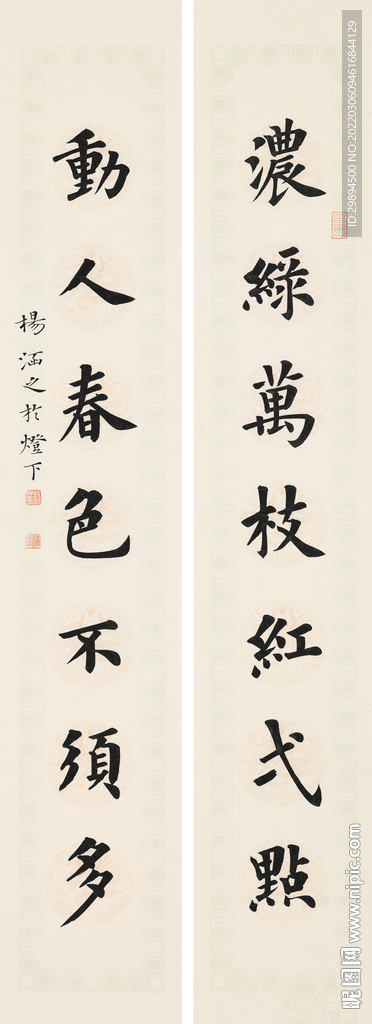 濃綠萬枝紅弌點
動人春色不須多
楊涵之於燈下
ID:29894500 NO:20220306094616844129
昵图网 www.nipic.com